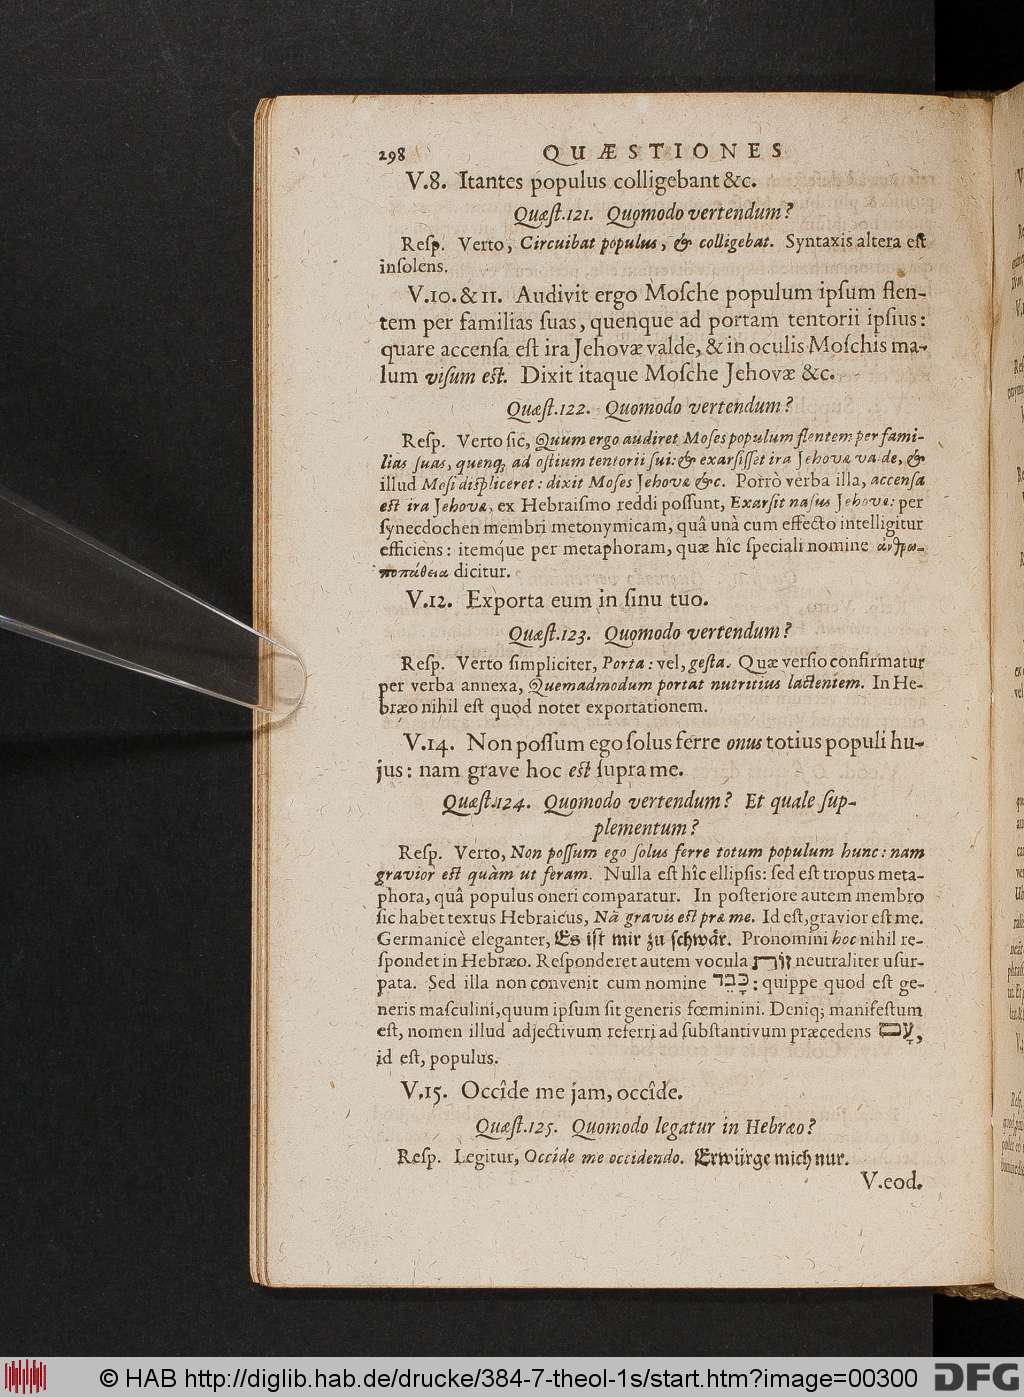 298 QUÆSTIONES
V.8. Itantes populus colligebant &c.
Quæſt.121. Quomodo vertendum?
Reſp. Verto, Circuibat populus, & colligebat. Syntaxis altera eſt
inſolens.
V.10. & 11. Audivit ergo Moſche populum ipſum flen-
tem per familias ſuas, quenque ad portam tentorii ipſius:
quare accenſa eſt ira Jehovæ valde, & in oculis Moſchis ma-
lum viſum eſt. Dixit itaque Moſche Jehovæ &c.
Quæſt.122. Quomodo vertendum?
Reſp. Verto ſic, Quum ergo audiret Moſes populum flentem per fami-
lias ſuas, quenq; ad oſtium tentorii ſui: & exarſiſſet ira Jehovæ va de, &
illud Moſi diſpliceret: dixit Moſes Jehovæ &c. Porrò verba illa, accenſa
eſt ira Jehovæ, ex Hebraiſmo reddi poſſunt, Exarſit naſus Jehovæ: per
ſynecdochen membri metonymicam, quâ unà cum effecto intelligitur
efficiens: itemq́ue per metaphoram, quæ hîc ſpeciali nomine ἀνθρω-
ποπάθεια dicitur.
V.12. Exporta eum in ſinu tuo.
Quæſt.123. Quomodo vertendum?
Reſp. Verto ſimpliciter, Porta: vel, geſta. Quæ verſio confirmatur
per verba annexa, Quemadmodum portat nutritius lactentem. In He-
bræo nihil eſt quod notet exportationem.
V.14. Non poſſum ego ſolus ferre onus totius populi hu-
jus: nam grave hoc eſt ſupra me.
Quæſt.124. Quomodo vertendum? Et quale ſup-
plementum?
Reſp. Verto, Non poſſum ego ſolus ferre totum populum hunc: nam
gravior eſt quàm ut feram. Nulla eſt hîc ellipſis: ſed eſt tropus meta-
phora, quâ populus oneri comparatur. In poſteriore autem membro
ſic habet textus Hebraicus, Nã gravis eſt præ me. Id eſt, gravior eſt me.
Germanicè eleganter, Es iſt mir zu ſchwär. Pronomini hoc nihil re-
ſpondet in Hebræo. Reſponderet autem vocula זֹאת neutraliter uſur-
pata. Sed illa non convenit cum nomine כָּבֵד: quippe quod eſt ge-
neris maſculini, quum ipſum ſit generis fœminini. Deniq; manifeſtum
eſt, nomen illud adjectivum referri ad ſubſtantivum præcedens עָם,
id eſt, populus.
V.15. Occîde me jam, occîde.
Quæſt.125. Quomodo legatur in Hebræo?
Reſp. Legitur, Occide me occidendo. Erwürge mich nur.
V.eod.
© HAB http://diglib.hab.de/drucke/384-7-theol-1s/start.htm?image=00300
DFG